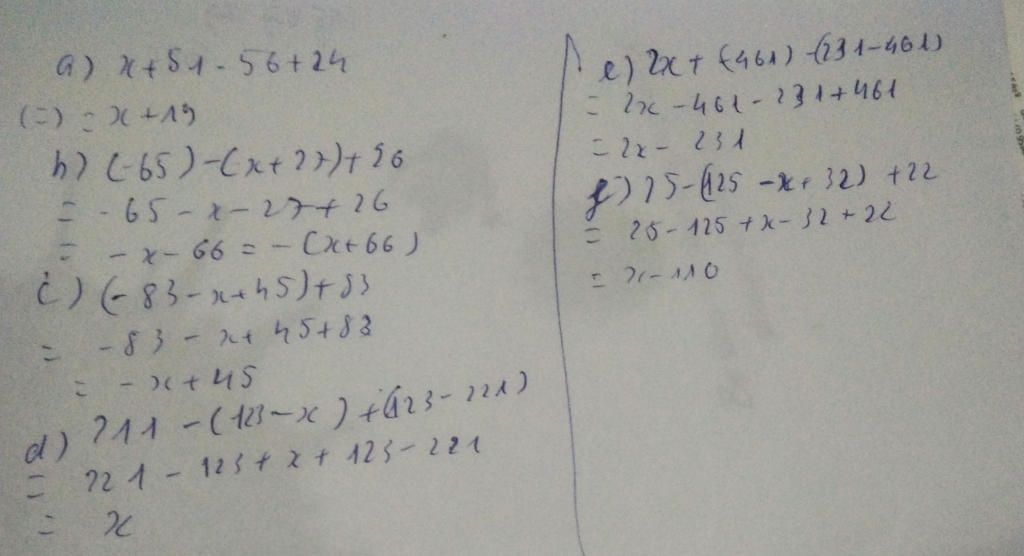 a) x+51-56+24
(=) = x+19
b) (-65)-(x+27)+26
= -65-x-27+26
= -x-66 = -(x+66)
c) (-83-x+45)+83
= -83-x+45+83
= -x+45
d) 211-(123-x)+(123-221)
= 221-123+x+123-221
= x
e) 2x+(-461)-(231-461)
= 2x-461-231+461
= 2x-231
f) 25-(125-x+32)+22
= 25-125+x-32+22
= x-110